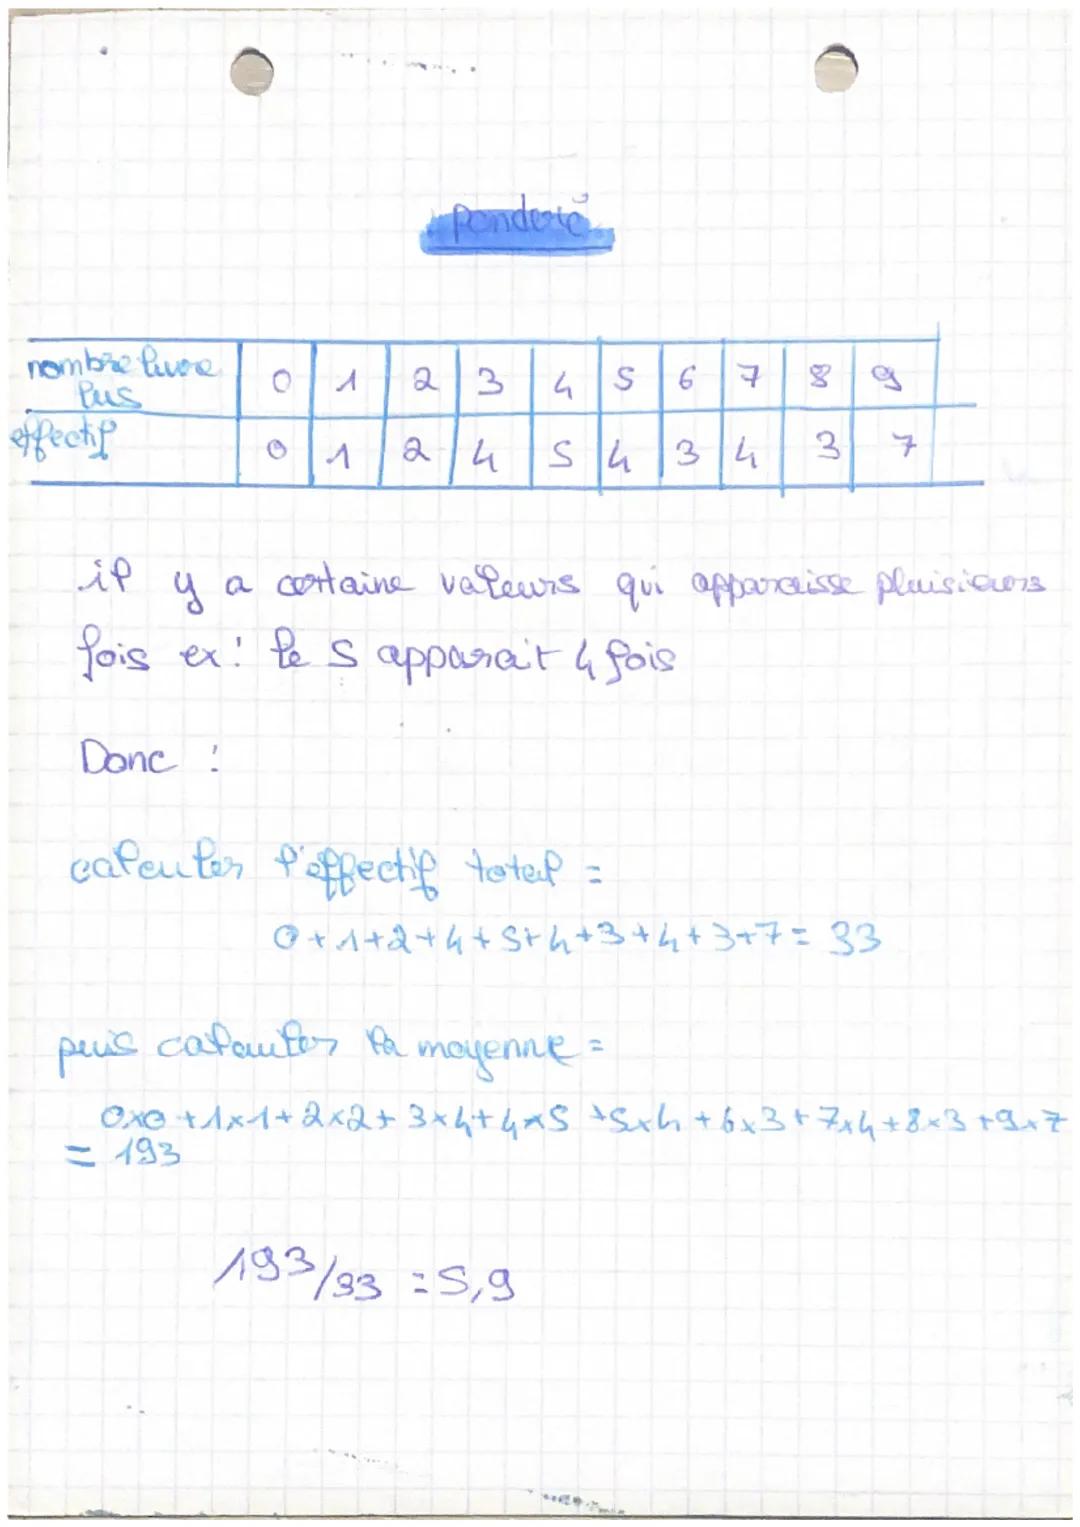 Ponderé
nombre livre lus 0 1 2 3 4 5 6 7 8 9
effectif 0 1 2 4 5 4 3 4 3 7
il y a certaine valeurs qui apparaisse pluisieurs
fois ex: le 5 apparait 4 fois
Donc :
calculer l'effectif total =
0+1+2+4+5+4+3+4+3+7= 33
puis calculer la moyenne =
0x0 +1x1+2x2+3x4+4x5 +5x4+6x3+7x4+8x3+9x7
= 193
193/33 =5,9